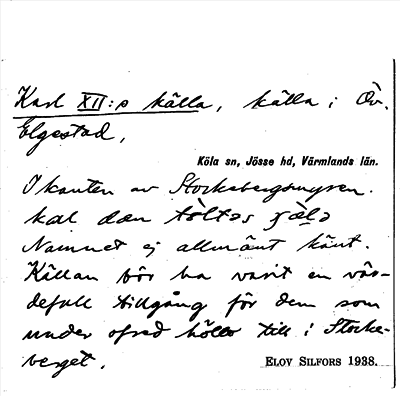 Karl XII:s källa, källa i Öv.
Elgestad,
Köla sn, Jösse hd, Värmlands län.
I kanten av Stocksbergsmyren.
kal dan tòltəs ɟæ̀lə
Namnet ej allmänt känt.
Källan bör ha varit en vär-
defull tillgång för dem som
under ofred höllo till i Stocks-
berget.
ELOV SILFORS 1938.